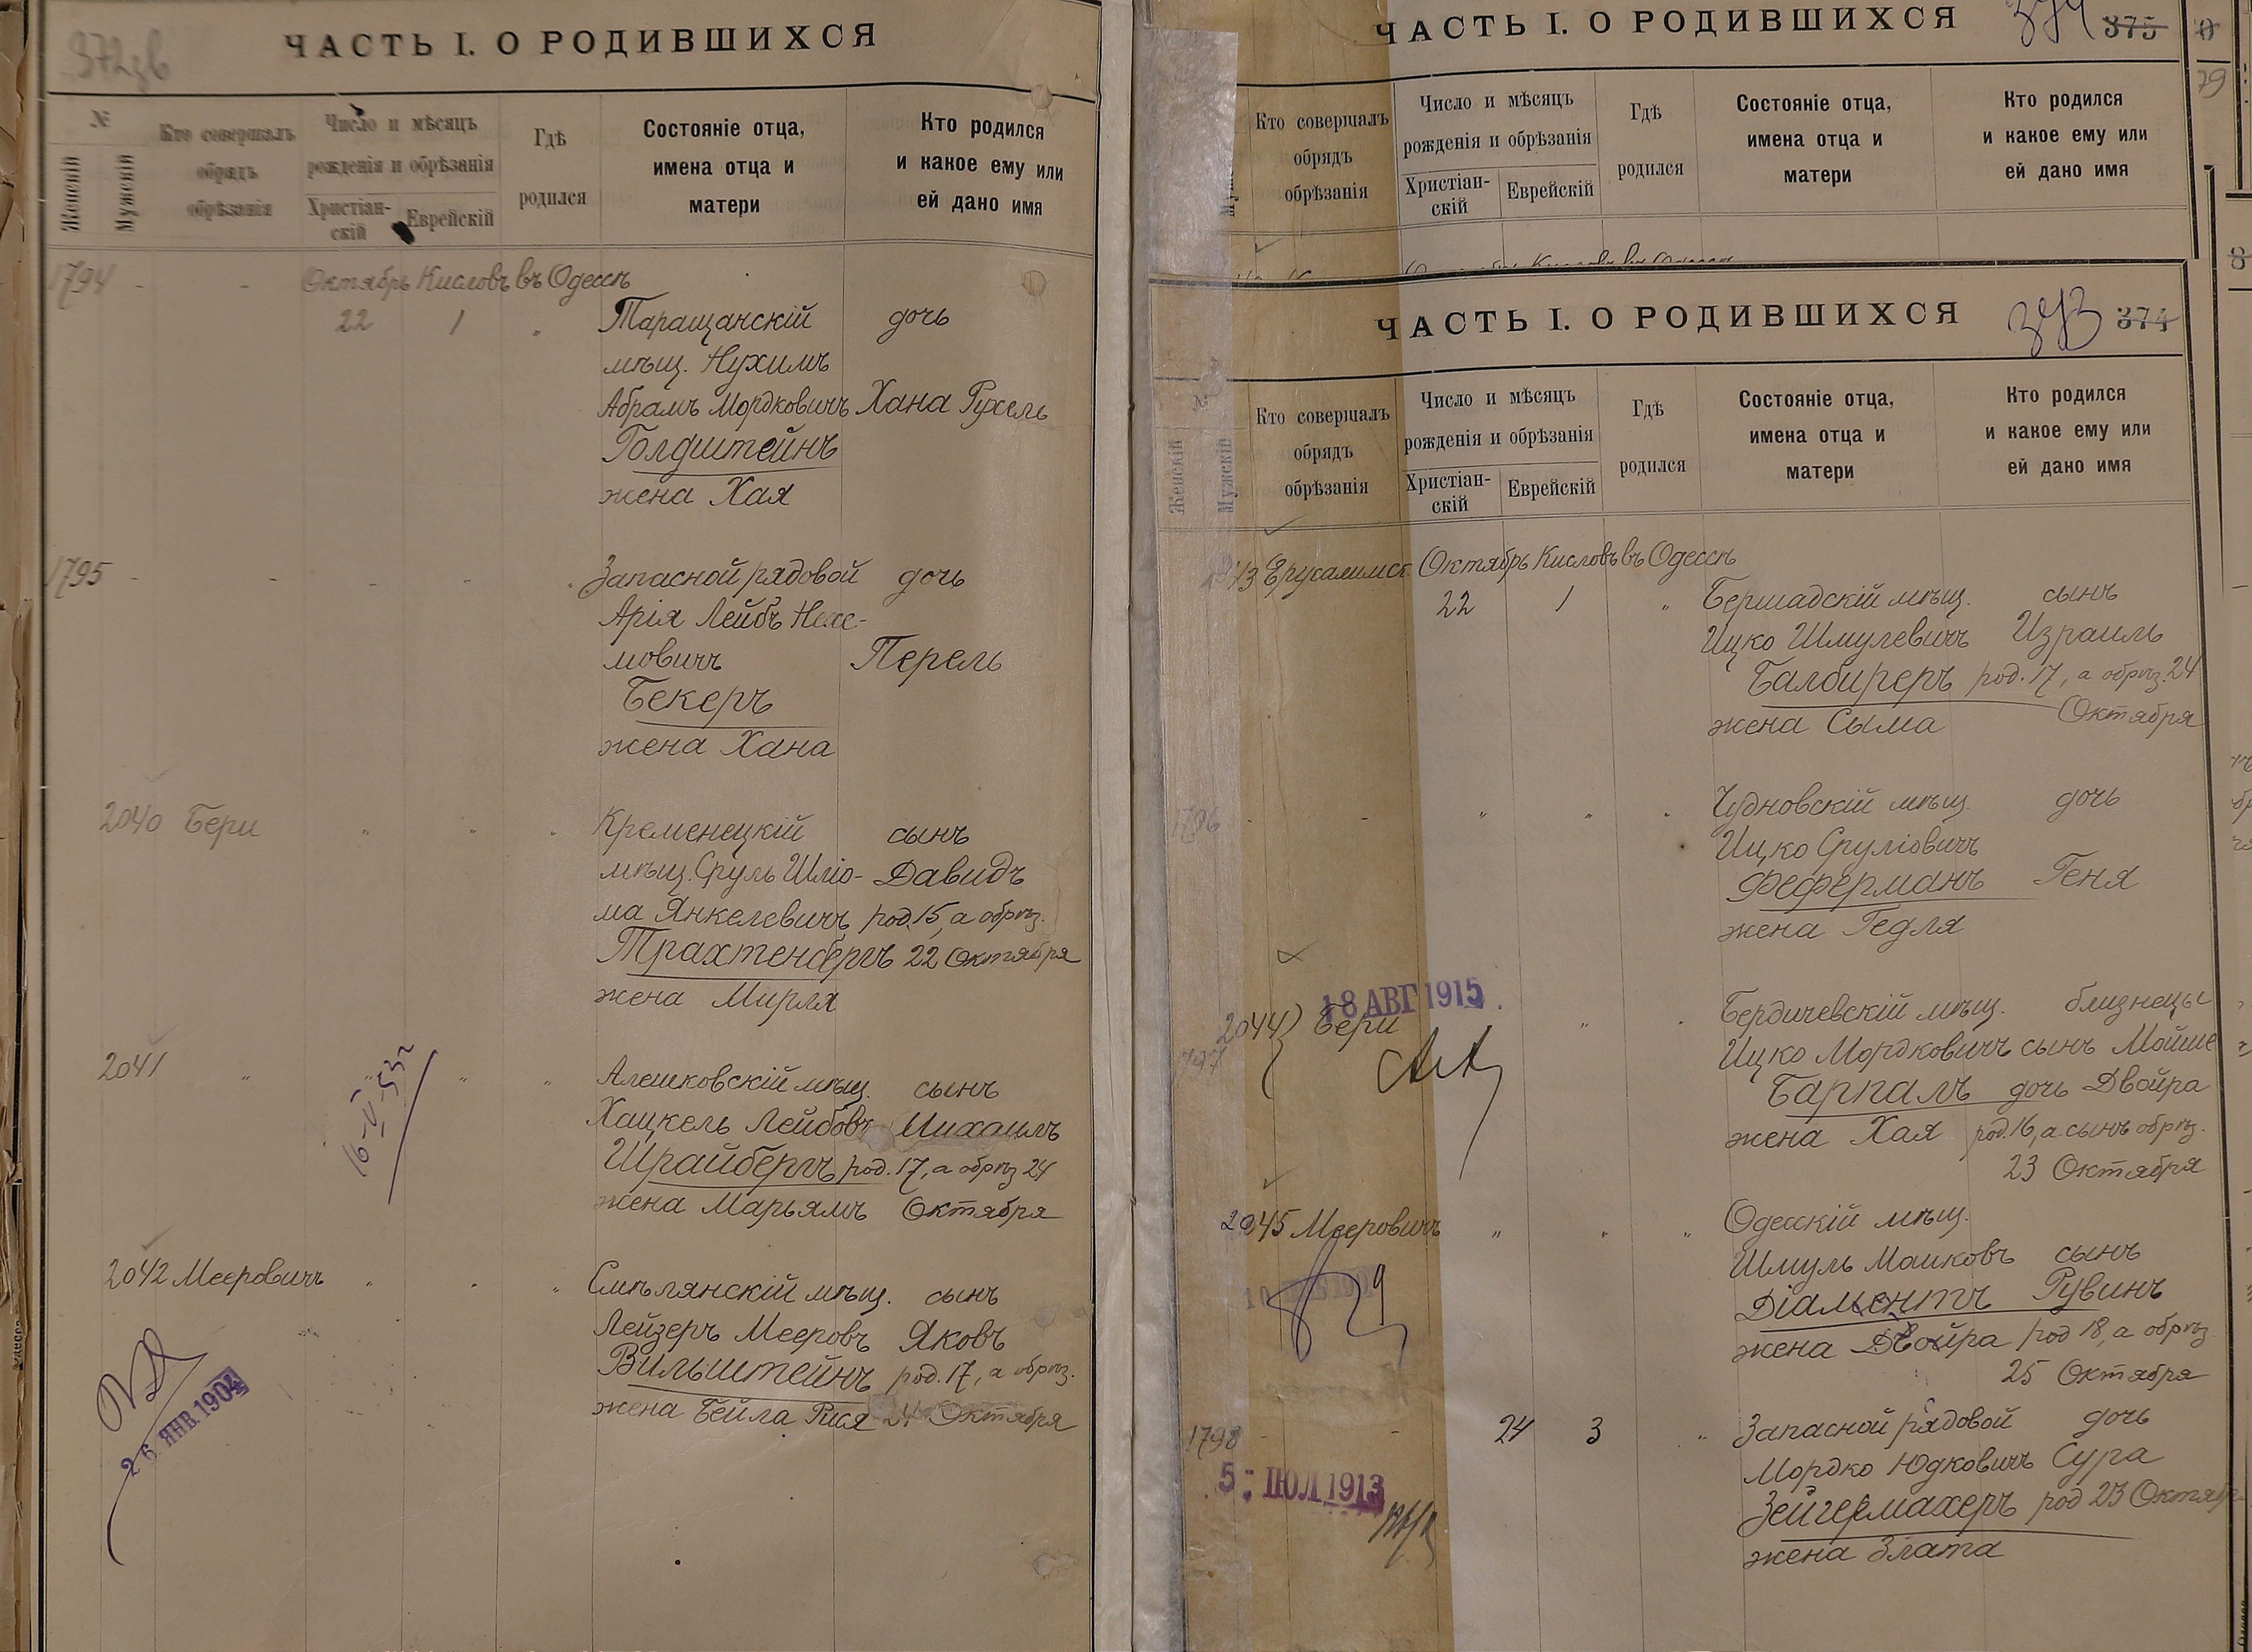 372 зв
ЧАСТЬ I. О РОДИВШИХСЯ
№
Женскій
Мужскій
Кто совершалъ
обрядъ
обрѣзанія
Число и мѣсяцъ
рожденія и обрѣзанія
Христіан-
скій
Еврейскій
Гдѣ
родился
Состояніе отца,
имена отца и
матери
Кто родился
и какое ему или
ей дано имя
1794 - - Октябрь Кисловъ въ Одессѣ
22 1 " Таращанскій дочь
мѣщ. Нухимъ
Абрамъ Мордковичъ Хана Рухель
Голдштейнъ
жена Хая
1795 - - " " " Запасной рядовой дочь
Арія Лейбъ Нехе-
мовичъ Перель
Бекеръ
жена Хана
2040 Бери " " " Кременецкій сынъ
мѣщ. Сруль Шліо- Давидъ
ма Янкелевичъ род. 15, а обрѣз.
Трахтенбергъ 22 Октября
жена Мирля
2041 " " " " Алешковскій мѣщ. сынъ
16-V-53г
Хацкель Лейбовъ Михаилъ
Шрайбергъ род. 17, а обрѣз 24
жена Марьямъ Октября
2042 Мееровичъ " " " Смѣлянскій мѣщ. сынъ
Лейзеръ Мееровъ Яковъ
Вильштейнъ род. 17, а обрѣз.
жена Бейла Рися 24 Октября
26 ЯНВ 1904
ЧАСТЬ I. О РОДИВШИХСЯ
374 375
Кто совершалъ
обрядъ
обрѣзанія
Число и мѣсяцъ
рожденія и обрѣзанія
Христіан-
скій
Еврейскій
Гдѣ
родился
Состояніе отца,
имена отца и
матери
Кто родился
и какое ему или
ей дано имя
ЧАСТЬ I. О РОДИВШИХСЯ
373 374
Женскій
Мужскій
Кто совершалъ
обрядъ
обрѣзанія
Число и мѣсяцъ
рожденія и обрѣзанія
Христіан-
скій
Еврейскій
Гдѣ
родился
Состояніе отца,
имена отца и
матери
Кто родился
и какое ему или
ей дано имя
Ерусалимск. Октябрь Кисловъ въ Одессѣ
22 1 " Бершадскій мѣщ. сынъ
Ицко Шмулевичъ Израиль
Балбиреръ род. 17, а обрѣз. 24
жена Сыма Октября
1796 - - " " " Чудновскій мѣщ. дочь
Ицко Сруліовичъ
Феферманъ Геня
жена Гедля
18 АВГ 1915
2044) Бери " " Бердичевскій мѣщ. близнецы
Ицко Мордковичъ сынъ Мойше
Барпалъ дочь Двойра
жена Хая род. 16, а сынъ обрѣз.
23 Октября
2045 Мееровичъ " " " Одесскій мѣщ.
Шмуль Машковъ сынъ
Діаментъ Рувинъ
жена Двойра род 18, а обрѣз.
25 Октября
1798 - - 24 3 " Запасной рядовой дочь
Мордко Юдковичъ Сура
Зейгермахеръ род 23 Октября
жена Злата
5 ІЮЛ 1913